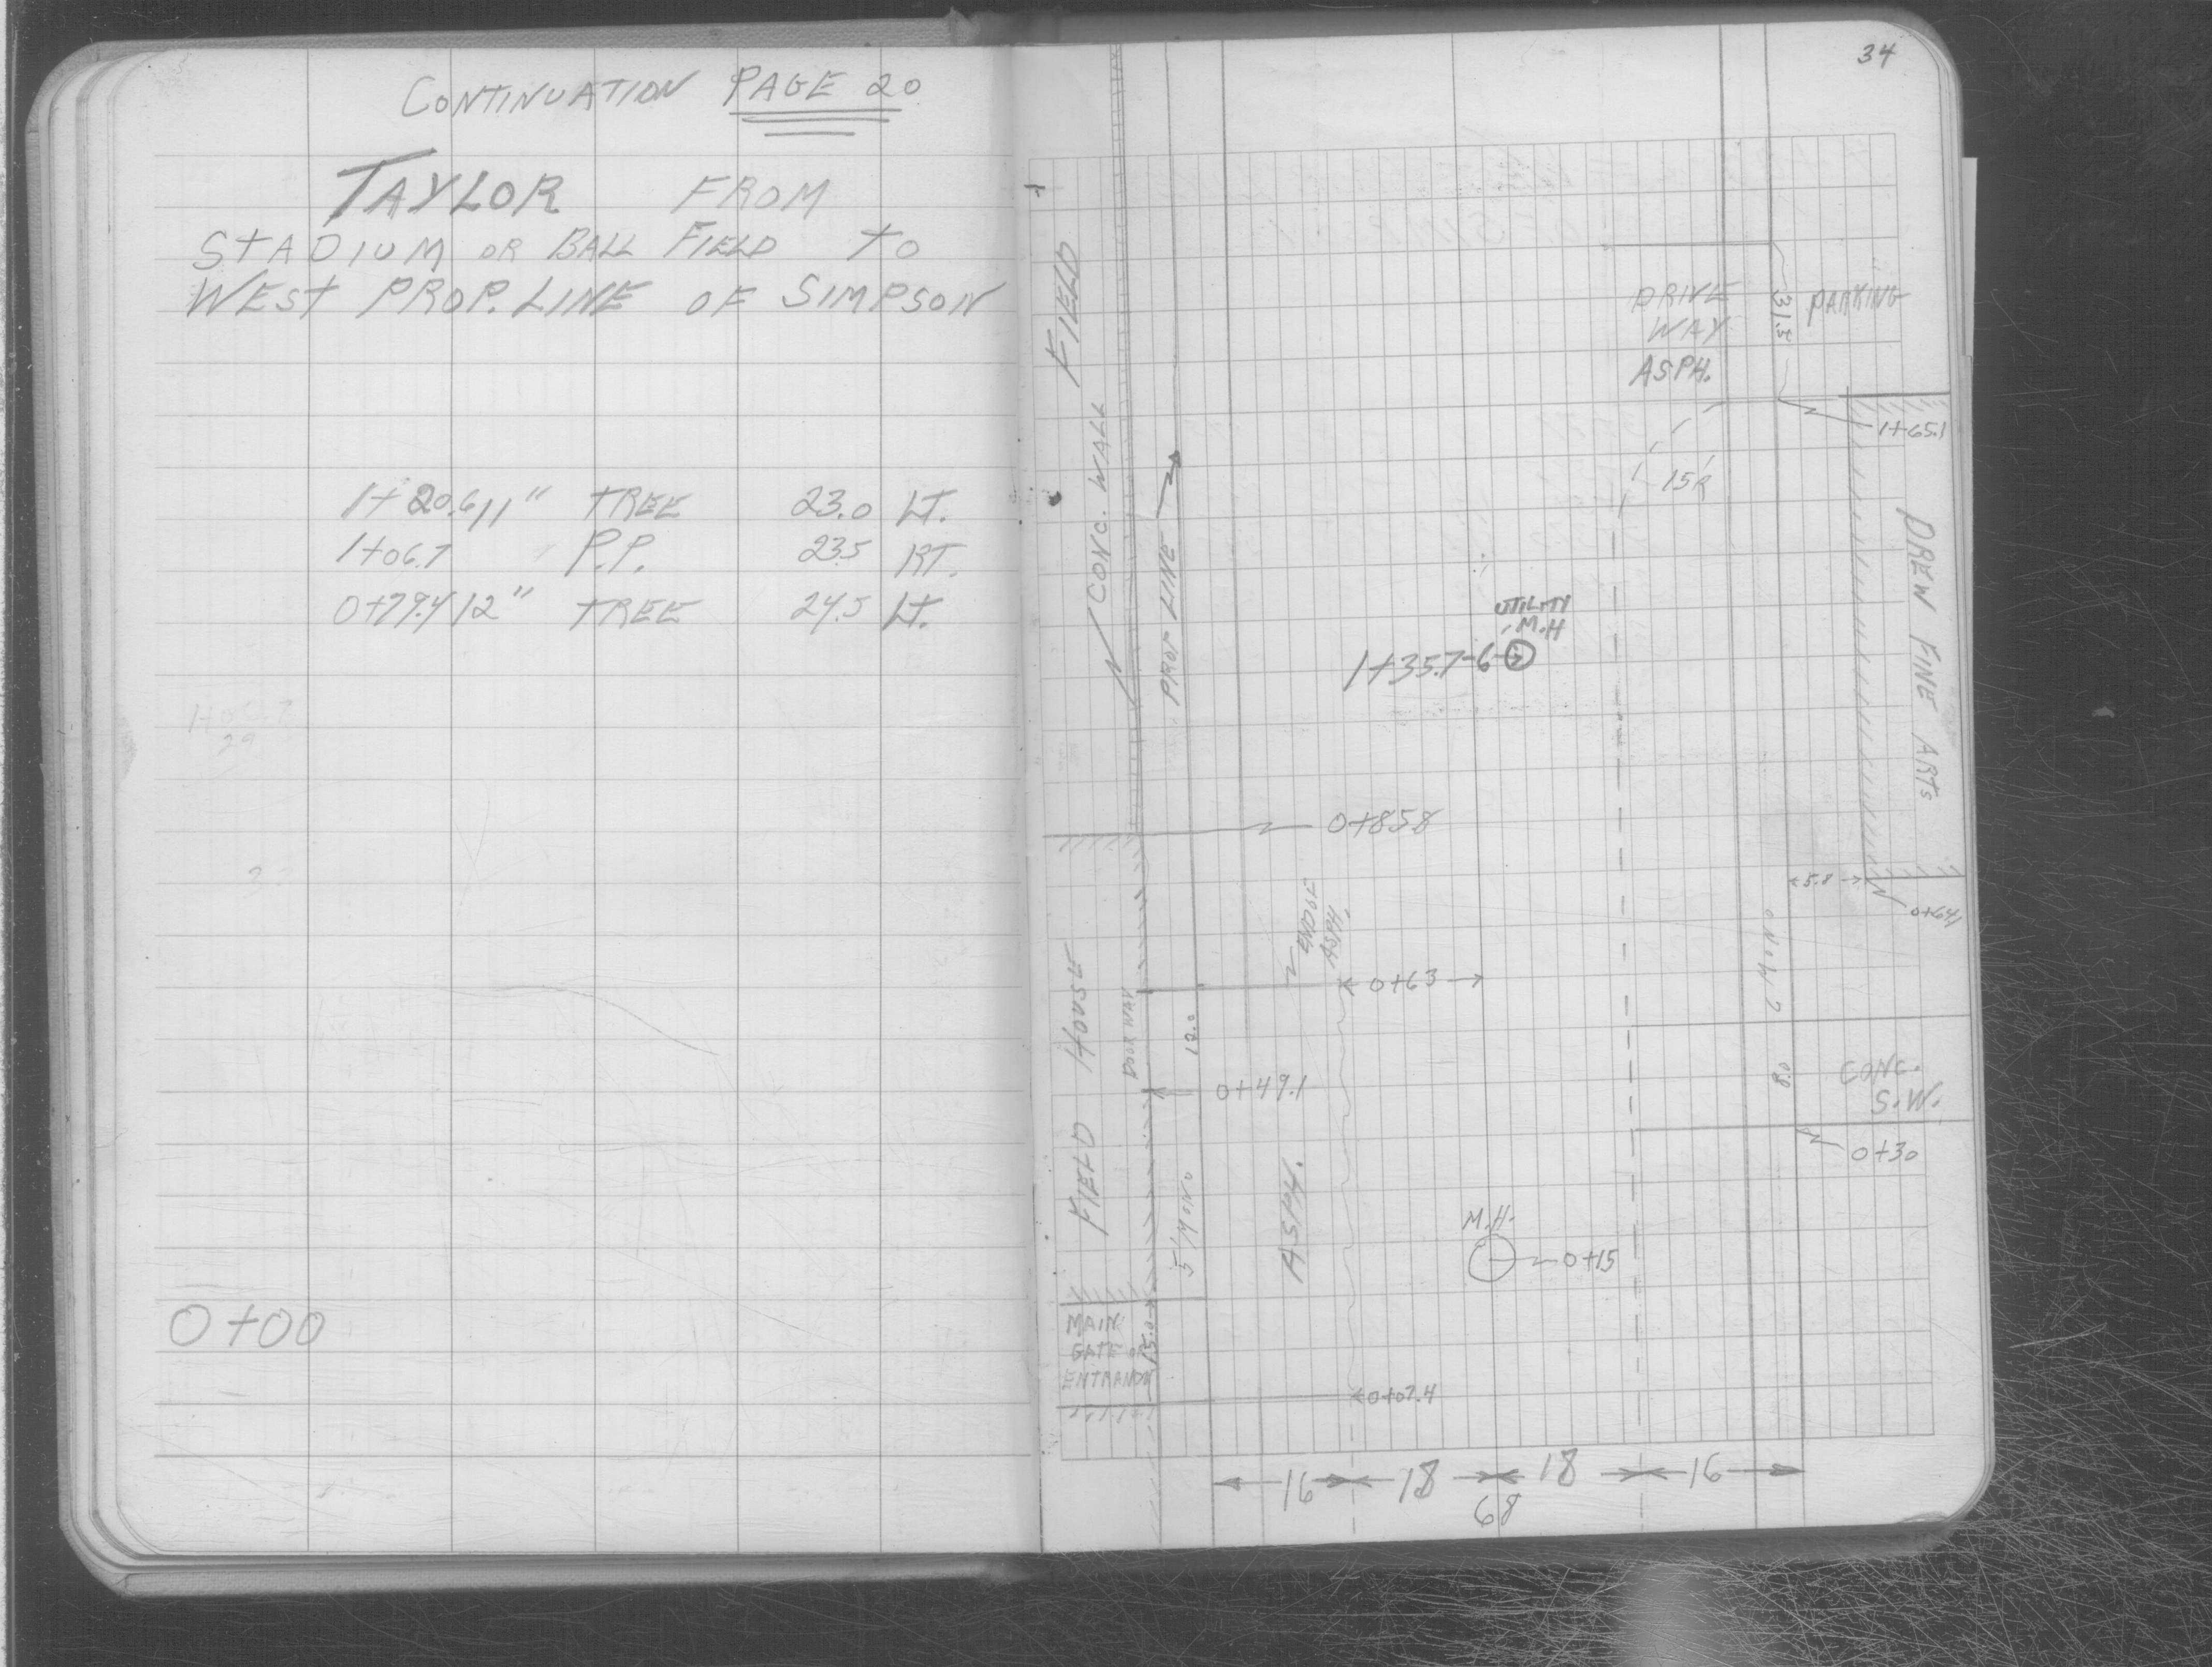 CONTINUATION PAGE 20
TAYLOR FROM
STADIUM OR BALL FIELD TO
WEST PROP. LINE OF SIMPSON
1+20.6 11" TREE 23.0 LT.
1+06.7 P.P. 23.5 RT.
0+79.4 12" TREE 24.5 LT.
0+00
34
FIELD
CONC. WALL
PROP LINE
DRIVE
WAY
ASPH.
31.5
PARKING
1+65.1
15R
DREW FINE ARTS
UTILITY
M.H
1+35.7-6
0+85.8
5.8
0+64.1
ASPH.
0+63
FIELD HOUSE
DOOR WAY
12.0
0+49.1
8.0
CONC.
S.W.
0+30
5' MONO
ASPH.
M.H.
0+15
MAIN
GATE OR
15.0
0+07.4
16 18 18 16
68